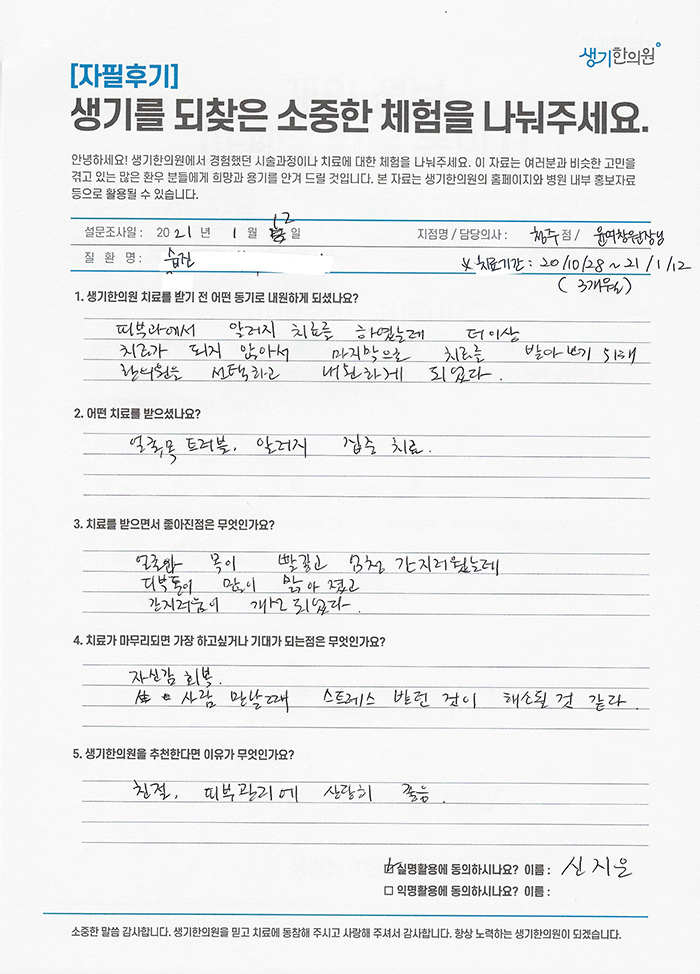 생기한의원
[자필후기]
생기를 되찾은 소중한 체험을 나눠주세요.
안녕하세요! 생기한의원에서 경험했던 시술과정이나 치료에 대한 체험을 나눠주세요. 이 자료는 여러분과 비슷한 고민을
겪고 있는 많은 환우 분들에게 희망과 용기를 안겨 드릴 것입니다. 본 자료는 생기한의원의 홈페이지와 병원 내부 홍보자료
등으로 활용될 수 있습니다.
설문조사일 : 2021 년 1 월 12 일 지점명 / 담당의사 : 점 / 원장님
질 환 명 : 습진 ※ 치료기간 : 20/10/28 ~ 21/1/12
( 3개월 )
1. 생기한의원 치료를 받기 전 어떤 동기로 내원하게 되셨나요?
피부과에서 알러지 치료를 하였는데 더이상
치료가 되지 않아서 마지막으로 치료를 받아보기 위해
한의원을 선택하고 내원하게 되었다.
2. 어떤 치료를 받으셨나요?
얼굴,목 트러블, 알러지 집중 치료.
3. 치료를 받으면서 좋아진점은 무엇인가요?
얼굴와 목이 빨갛고 엄청 간지러웠는데
피부톤이 많이 맑아 졌고
간지러움이 개선되었다.
4. 치료가 마무리되면 가장 하고싶거나 기대가 되는점은 무엇인가요?
자신감 회복.
사람 만날때 스트레스 받던 것이 해소될 것 같다.
5. 생기한의원을 추천한다면 이유가 무엇인가요?
친절, 피부관리에 상당히 좋음.
실명활용에 동의하시나요? 이름 : 신지은
□ 익명활용에 동의하시나요? 이름 :
소중한 말씀 감사합니다. 생기한의원을 믿고 치료에 동참해 주시고 사랑해 주셔서 감사합니다. 항상 노력하는 생기한의원이 되겠습니다.